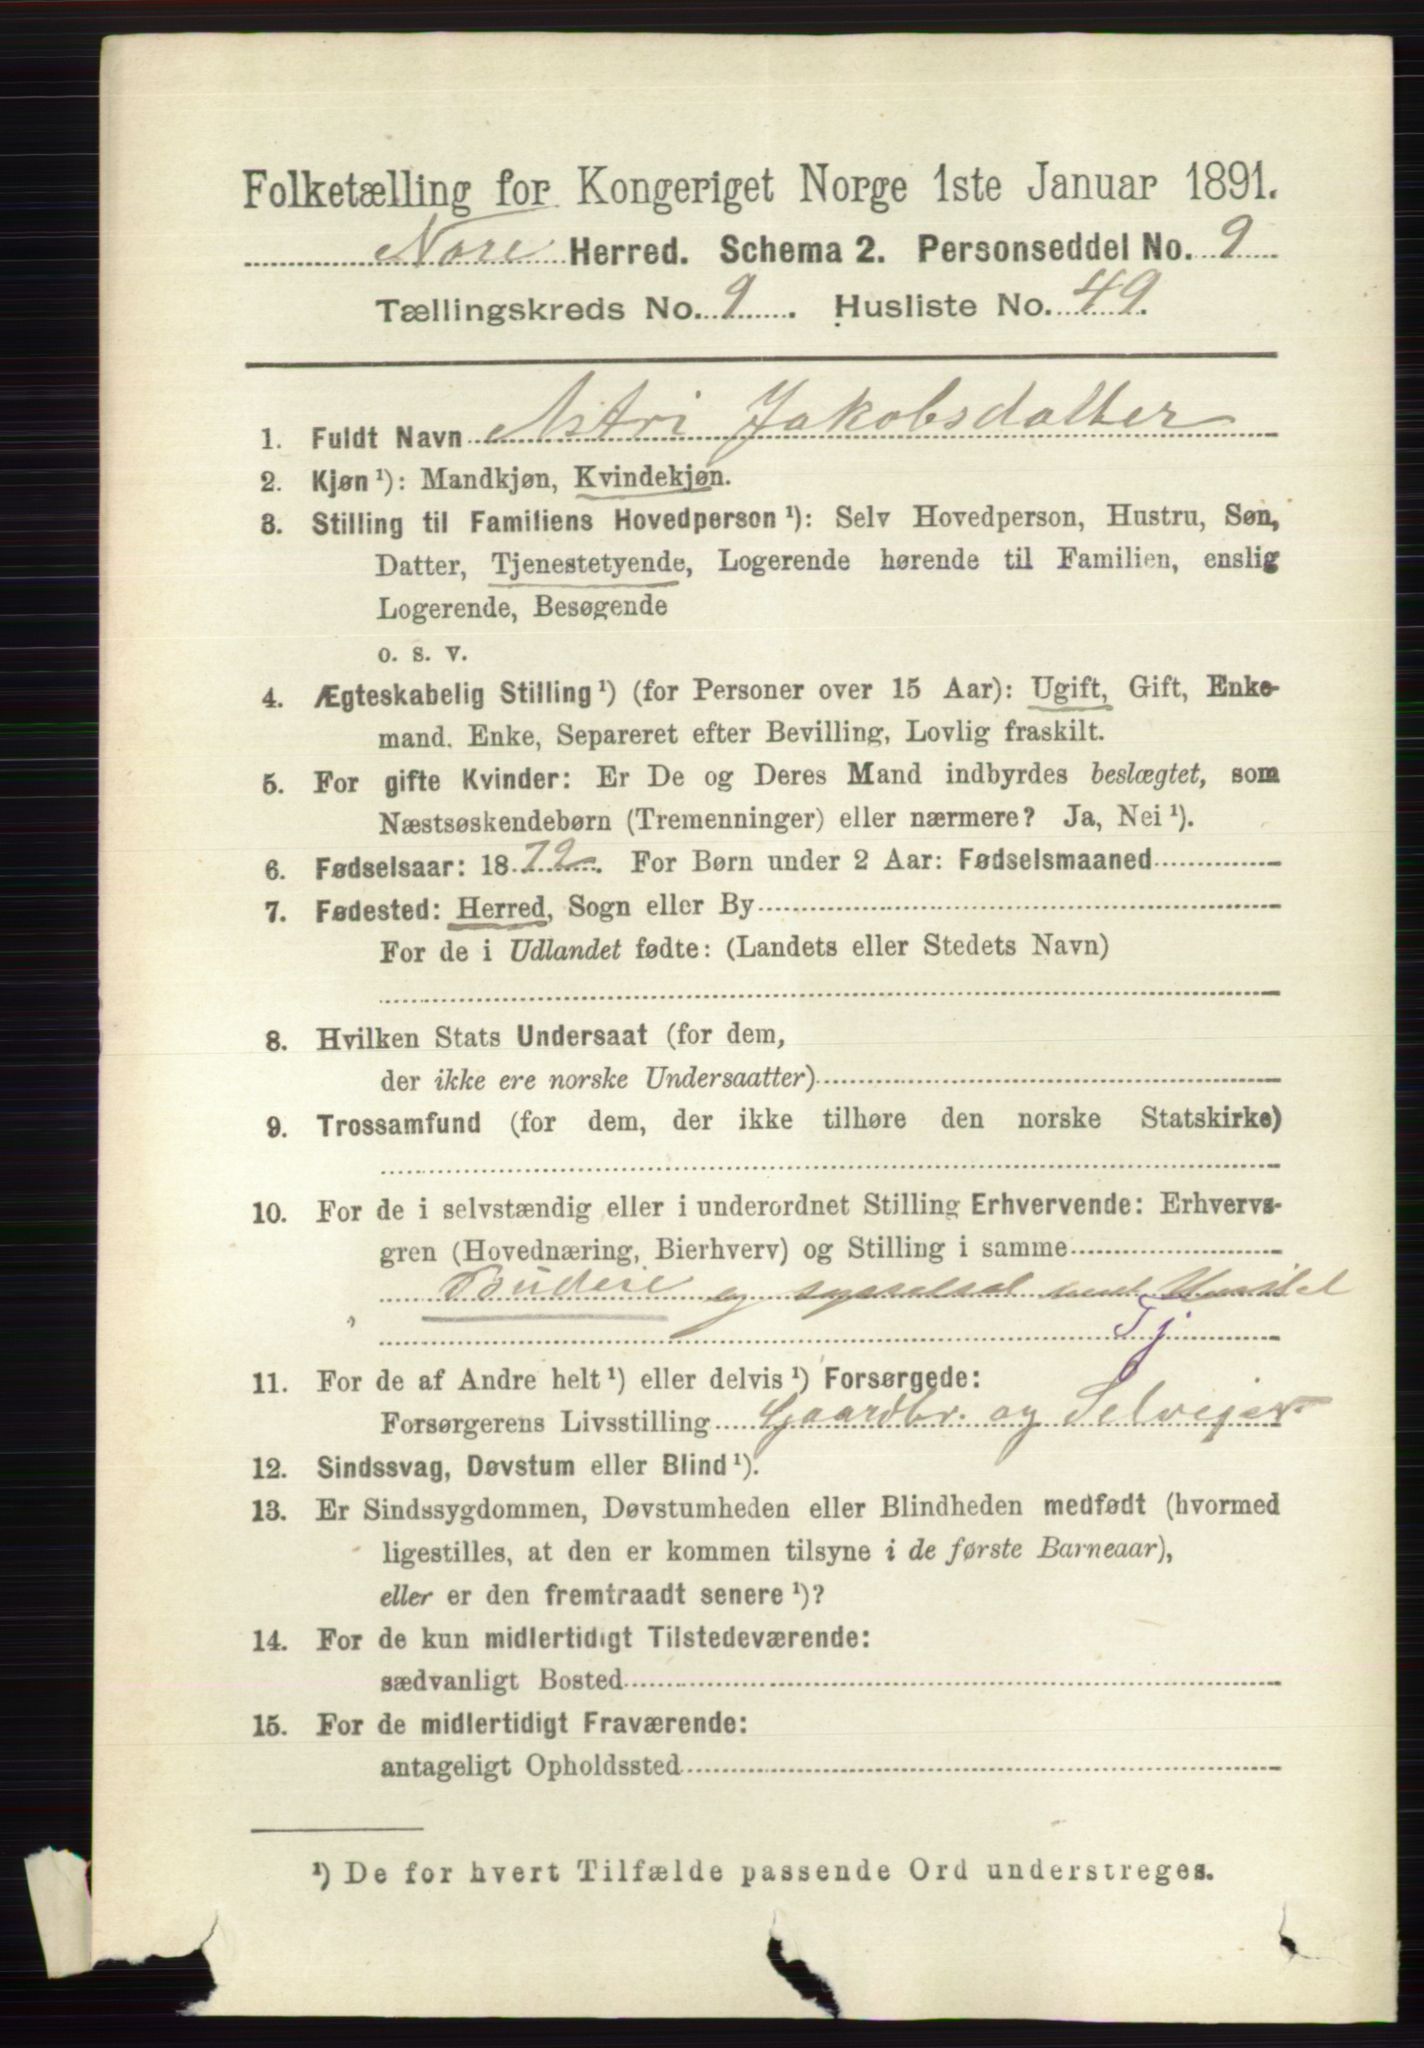 Folketælling for Kongeriget Norge 1ste Januar 1891.
Nore Herred. Schema 2. Personseddel No. 9
Tællingskreds No. 9. Husliste No. 49.
1. Fuldt Navn Astri Jakobsdatter
2. Kjøn ¹): Mandkjøn, Kvindekjøn.
3. Stilling til Familiens Hovedperson ¹): Selv Hovedperson, Hustru, Søn,
Datter, Tjenestetyende, Logerende hørende til Familien, enslig
Logerende, Besøgende
o. s. v.
4. Ægteskabelig Stilling ¹) (for Personer over 15 Aar): Ugift, Gift, Enke-
mand. Enke, Separeret efter Bevilling, Lovlig fraskilt.
5. For gifte Kvinder: Er De og Deres Mand indbyrdes beslægtet, som
Næstsøskendebørn (Tremenninger) eller nærmere? Ja, Nei ¹).
6. Fødselsaar: 1872. For Børn under 2 Aar: Fødselsmaaned
7. Fødested: Herred, Sogn eller By
For de i Udlandet fødte: (Landets eller Stedets Navn)
8. Hvilken Stats Undersaat (for dem,
der ikke ere norske Undersaatter)
9. Trossamfund (for dem, der ikke tilhøre den norske Statskirke)
10. For de i selvstændig eller i underordnet Stilling Erhvervende: Erhvervs-
gren (Hovednæring, Bierhverv) og Stilling i samme
Budeie og sysselsat med Husstel
Tj
11. For de af Andre helt ¹) eller delvis ¹) Forsørgede:
Forsørgerens Livsstilling Gaardbr. og Selvejer
12. Sindssvag, Døvstum eller Blind ¹).
13. Er Sindssygdommen, Døvstumheden eller Blindheden medfødt (hvormed
ligestilles, at den er kommen tilsyne i de første Barneaar),
eller er den fremtraadt senere ¹)?
14. For de kun midlertidigt Tilstedeværende:
sædvanligt Bosted
15. For de midlertidigt Fraværende:
antageligt Opholdssted
¹) De for hvert Tilfælde passende Ord understreges.